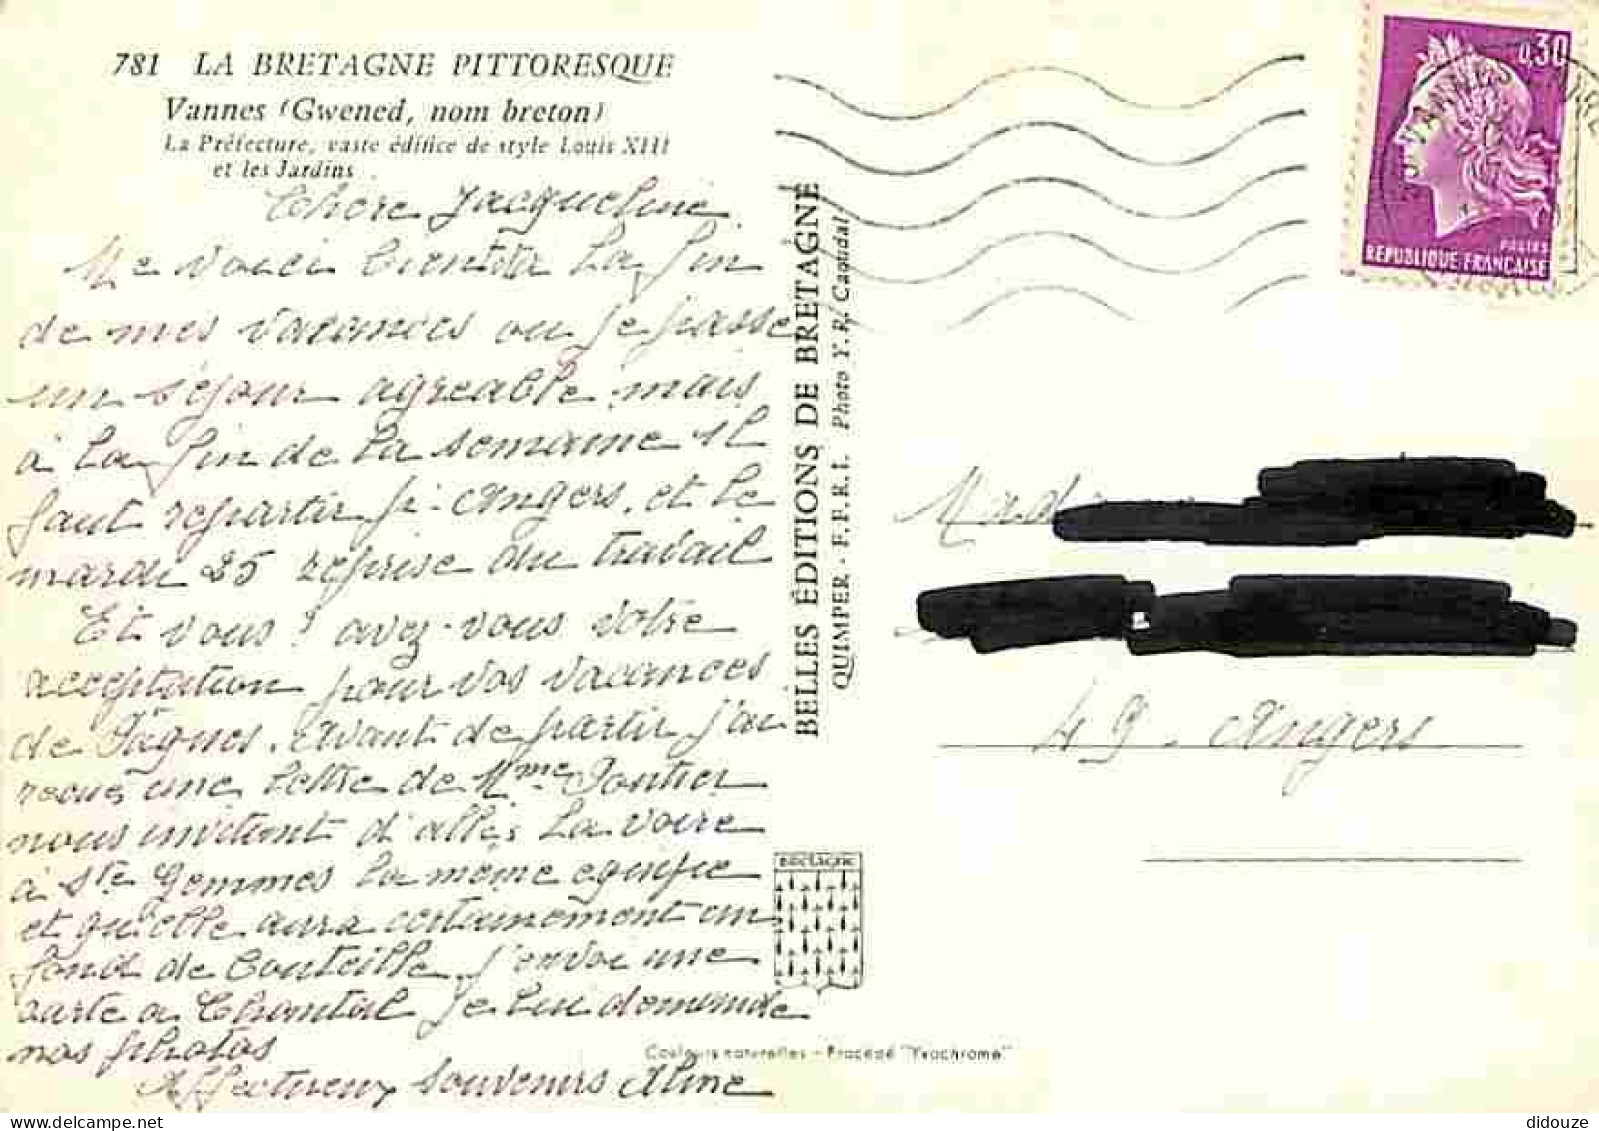 781 LA BRETAGNE PITTORESQUE
Vannes (Gwened, nom breton)
La Préfecture, vaste édifice de style Louis XIII
et les Jardins
Chère Jacqueline
Me voici bientôt la fin
de mes vacances ou je passe
un séjour agreable mais
à la fin de la semaine il
faut repartir pr Angers. et le
mardi 25 reprise du travail
Et vous ? avez-vous votre
acceptation pour vos vacances
de Pâques. Avant de partir j'ai
reçue une lettre de Mme
nous invitent d'aller la voire
à Ste Gemmes la même equipe
et qu'elle aura certainement un
fond de bouteille. j'envoi une
carte a Chantal je lui demande
nos photos
Affectueux souvenirs Aline
BELLES ÉDITIONS DE BRETAGNE
QUIMPER - F.F.R.I. Photo Y.R. Caoudal
0,30
VANNES
POSTES
REPUBLIQUE FRANÇAISE
49 - Angers
BRETAGNE
Couleurs naturelles - Procédé "Yvochrome"
didouze